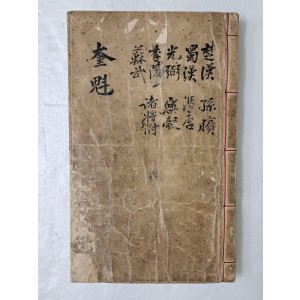 楚漢 孫臏
蜀漢 馮唐
光弼 樂毅
李陵 諸將附
蘇武
奎魁